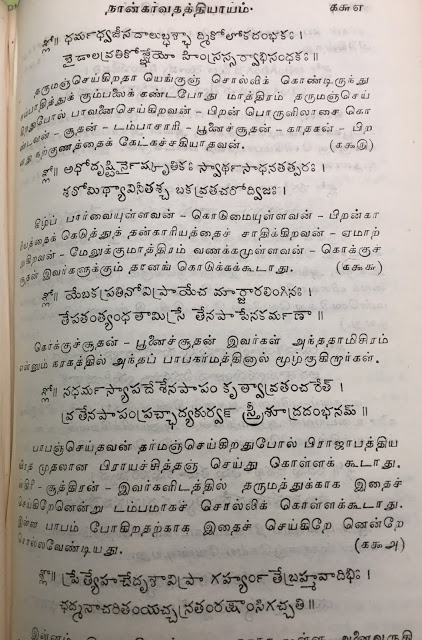 நான்காவதத்தியாயம். ௧௬௭
శ్లో॥ ధర్మధ్వజీసదాలుబ్ధశ్ఛా ద్మికోలోకదంభకః ।
బైడాలవ్రతికోజ్ఞేయో హింస్రస్సర్వాభిసంధకః ॥
தருமஞ்செய்கிறதா யெங்குஞ் சொல்லிக் கொண்டிருந்து
ம்பாதித்துக் கும்பலைக் கண்டபோது மாத்திரம் தருமஞ்செய்
கிறதுபோல் பாவனைசெய்கிறவன் - பிறன் பொருளிலாசை கொ
ண்டவன் - சூதன் - டம்பாசாரி - பூனைச்சூதன் - காதகன் - பிற
நற்குணத்தைக் கேட்கச்சகியாதவன். (௧௯௫)
శ్లో॥ అధోదృష్టిర్నైష్కృతికః స్వార్థసాధనతత్పరః ।
శఠోమిథ్యావినీతశ్చ బకవ్రతచరోద్విజః ॥
கீழ்ப் பார்வையுள்ளவன் - கொடுமையுள்ளவன் - பிறன்கா
ரியத்தைக் கெடுத்துத் தன்காரியத்தைச் சாதிக்கிறவன் - ஏமாற்
றுகிறவன் - மேலுக்குமாத்திரம் வணக்கமுள்ளவன் - கொக்குச்
சூதன் இவர்களுக்கும் தானங் கொடுக்கக்கூடாது. (௧௯௬)
శ్లో॥ యేబకవ్రతినోవిప్రాయేచ మార్జారలింగినః ।
తేపతంత్యంధతామిస్రే తేనపాపేనకర్మణా ॥
கொக்குச்சூதன் - பூனைச்சூதன் இவர்கள் அந்ததாமிசிரம்
என்னும் நரகத்தில் அந்தப் பாபகர்மத்தினால் மூழ்குகிறார்கள்.
శ్లో॥ నధర్మస్యాపదేశేనపాపం కృత్వావ్రతంచరేత్ ।
వ్రతేనపాపంప్రచ్ఛాద్యకుర్వన్ స్త్రీశూద్రదంభనమ్ ॥
பாபஞ்செய்தவன் தர்மஞ்செய்கிறதுபோல் பிராஜாபத்திய
முதலான பிராயச்சித்தஞ் செய்து கொள்ளக் கூடாது.
ஸ்திரி - சூத்திரன் - இவர்களிடத்தில் தருமத்துக்காக இதைச்
செய்கிறேனென்று டம்பமாகச் சொல்லிக் கொள்ளக்கூடாது.
இன்ன பாபம் போகிறதற்காக இதைச் செய்கிறே னென்றே
சொல்லவேண்டியது. (௧௯௮)
శ్లో॥ ప్రేత్యేహచేదృశావిప్రా గర్హ్యంతేబ్రహ్మవాదిభిః ।
ఛద్మనాచరితంయచ్చవ్రతంరక్షాంసిగచ్ఛతి ॥